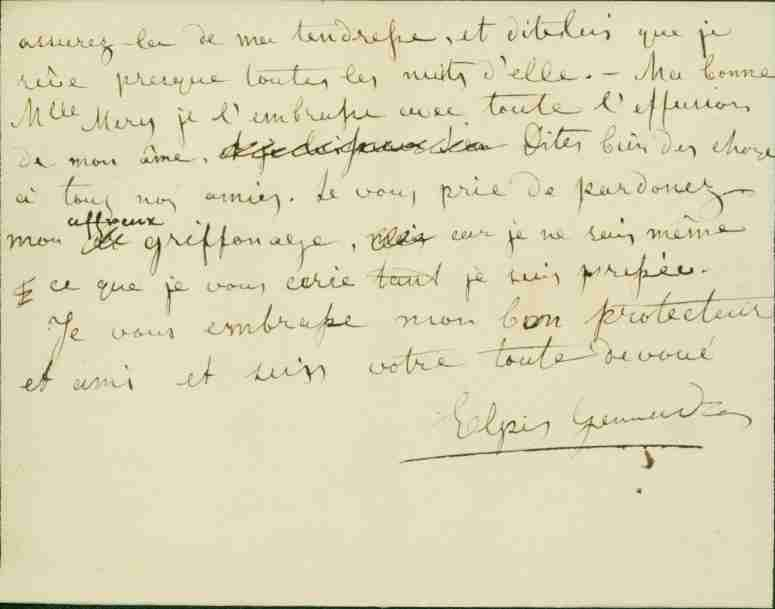 assurez-la de ma tendresse, et dites lui que je
rêve presque toutes les nuits d'elle. – Ma bonne
Mlle Mery je l'embrasse avec toute l'effusion
de mon âme. Dites bien des chose
à tous nos amies. Je vous prie de pardonez
mon affreux griffonage, car je ne sais même
ce que je vous ecrie tant je suis pressée.
Je vous embrasse mon bon protecteur
et ami et suis votre toute devoué
Elpis